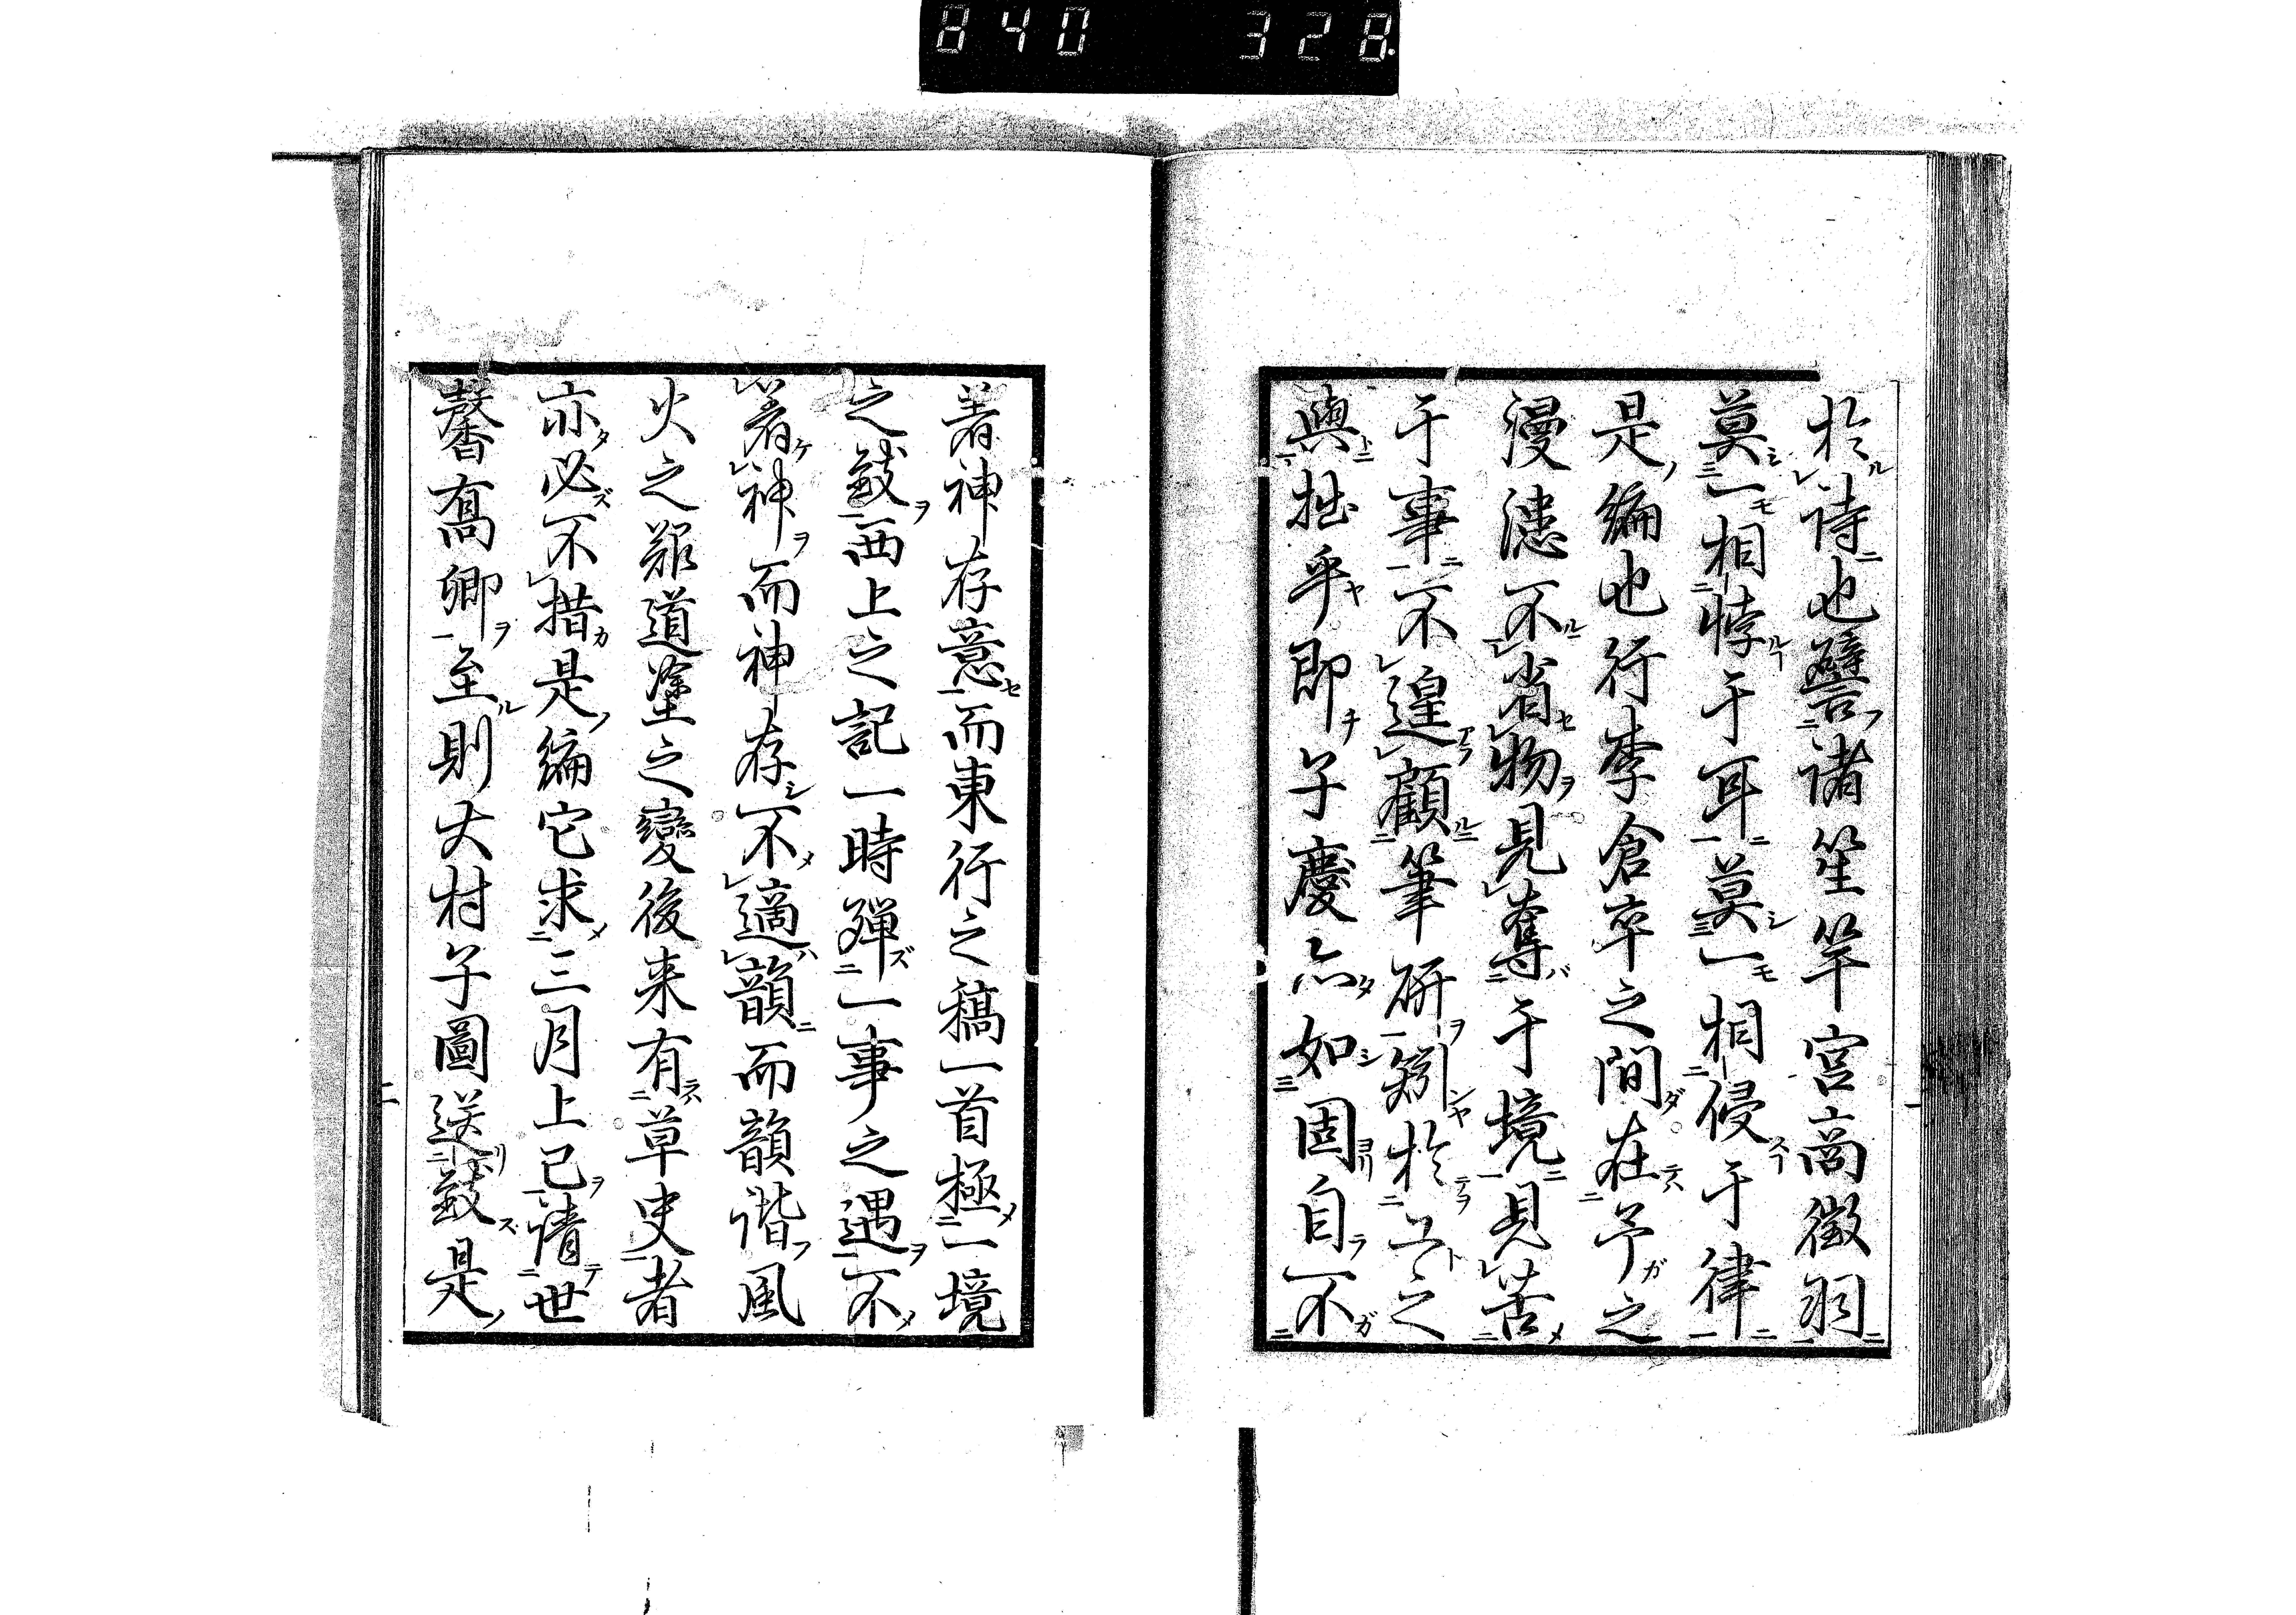 840 328
於詩也譬諸笙竿宮商徵羽
莫一相悖于耳莫一相侵于律
是編也行李倉卒之間在予之
漫漶不省物見奪于境見苦
于事不遑顧筆研矧於工之
與拙乎即子慶亦如固自不
著神存意而東行之稿一首極一境
之致西上之記一時殫一事之遇不
著神而神存不適韻而韻諧風
火之艱道塗之變後来有草史者
亦必不措是編它求三月上巳請世
馨髙卿至則大村子圖送致是